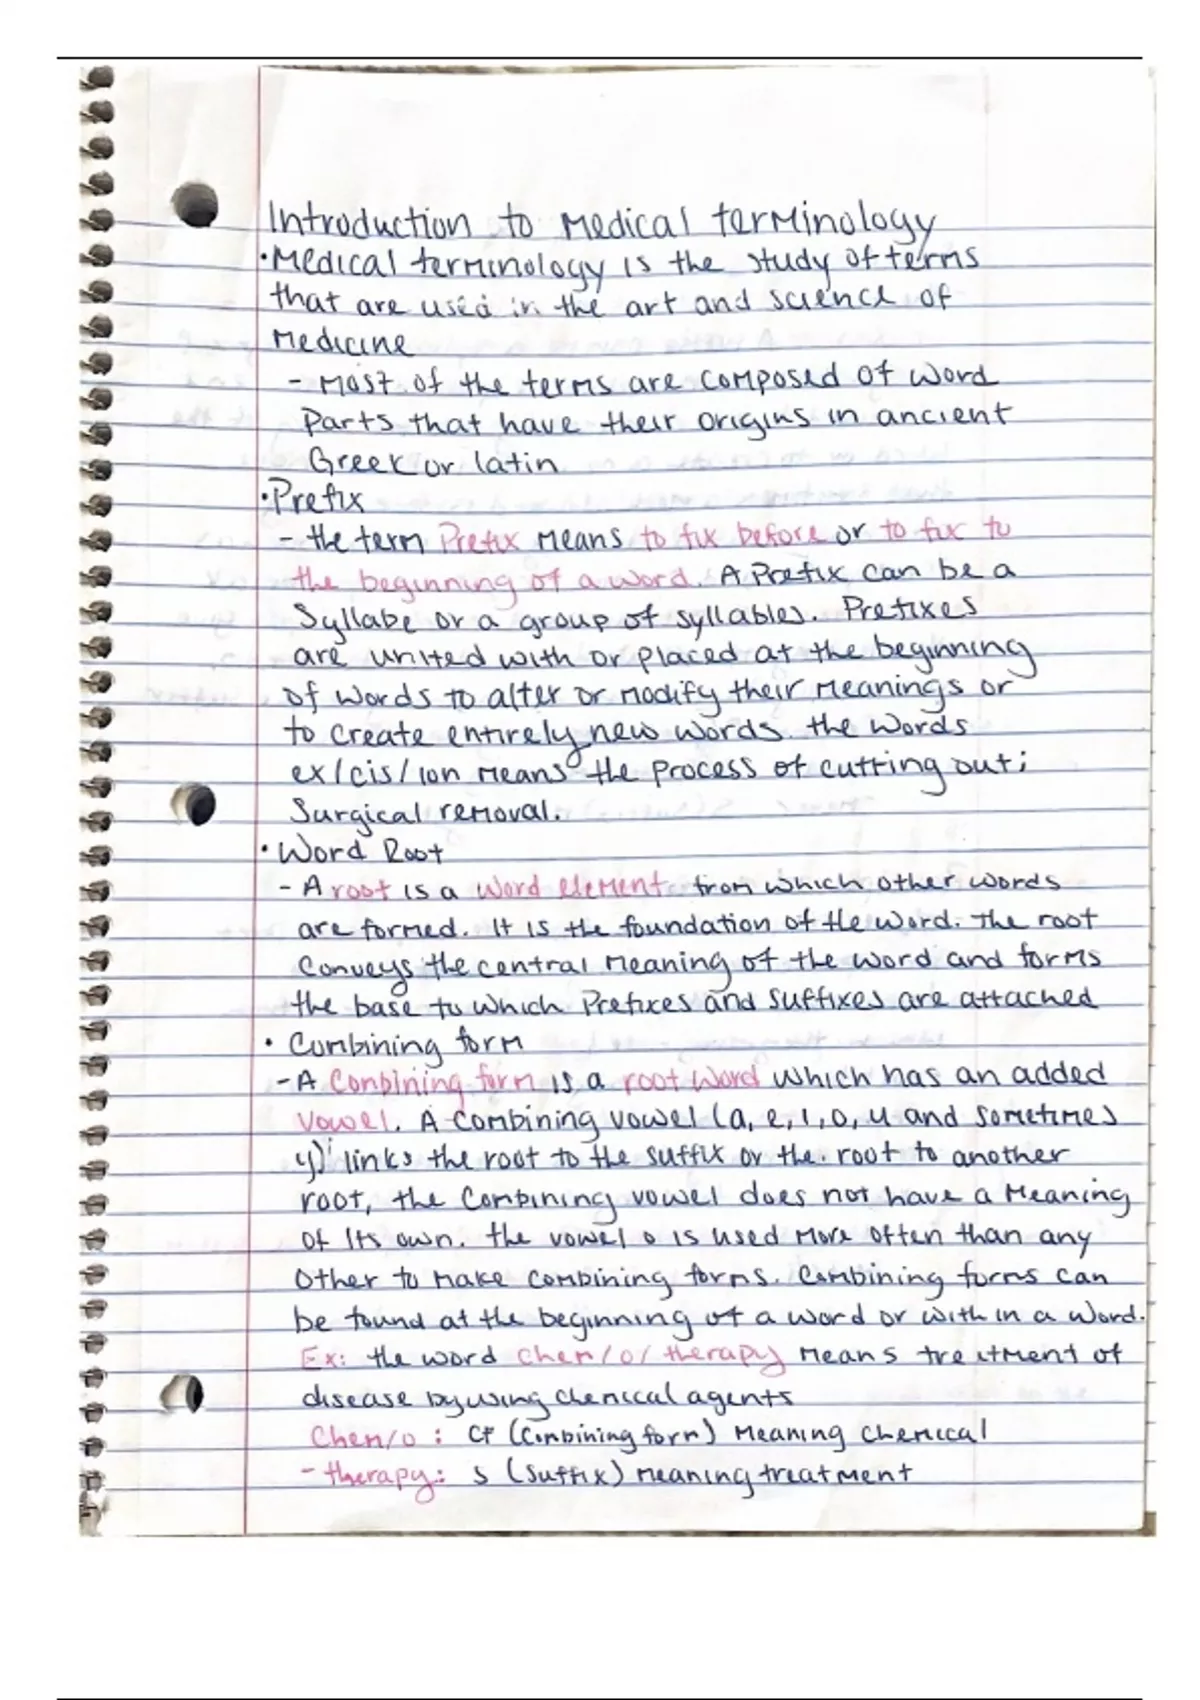 Introduction to Medical terminology
•Medical terminology is the study of terms
that are used in the art and science of
Medicine
- Most of the terms are composed of word
Parts that have their origins in ancient
Greek or latin
•Prefix
- the term Prefix Means to fix before or to fix to
the beginning of a word. A Prefix can be a
Syllabe or a group of syllables. Prefixes
are united with or placed at the beginning
of words to alter or modify their meanings or
to create entirely new words. the words
ex/cis/ion means the process of cutting out;
Surgical removal.
• Word Root
- A root is a word element from which other words
are formed. It is the foundation of the word. The root
Conveys the central meaning of the word and forms
the base to which Prefixes and suffixes are attached
• Combining form
- A Combining form is a root word which has an added
Vowel. A combining vowel (a, e, i, o, u and sometimes
y) links the root to the suffix or the root to another
root, the combining vowel does not have a meaning
of its own. the vowel o is used more often than any
other to make combining forms. Combining forms can
be found at the beginning of a word or with in a word.
Ex: the word Chem/o/therapy means treatment of
disease by using chemical agents
Chem/o : CF (Combining form) Meaning chemical
- therapy: S (Suffix) meaning treatment